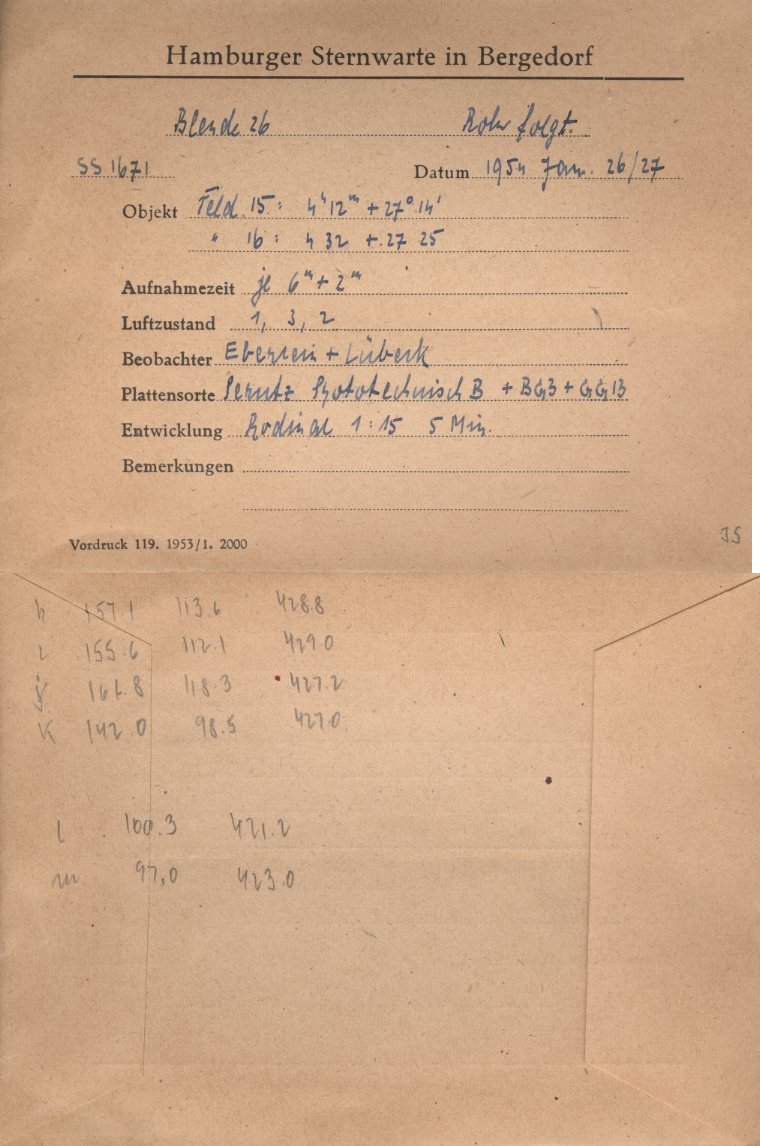 Hamburger Sternwarte in Bergedorf
Blende 26 Rohr folgt.
SS 1671 Datum 1954 Jan. 26/27
Objekt Feld 15: 4ʰ12ᵐ + 27° 14'
" 16: 4 32 + 27 25
Aufnahmezeit je 6ᵐ + 2ᵐ
Luftzustand 1, 3, 2
Beobachter Eberlein + Lübeck
Plattensorte Perutz Phototechnisch B + BG3 + GG 13
Entwicklung Rodinal 1:15 5 Min.
Bemerkungen
Vordruck 119. 1953/1. 2000
35
h 157.1 113.6 428.8
i 155.6 112.1 429.0
161.8 118.3 427.2
K 142.0 98.5 427.0
l 100.3 421.2
m 97,0 423.0